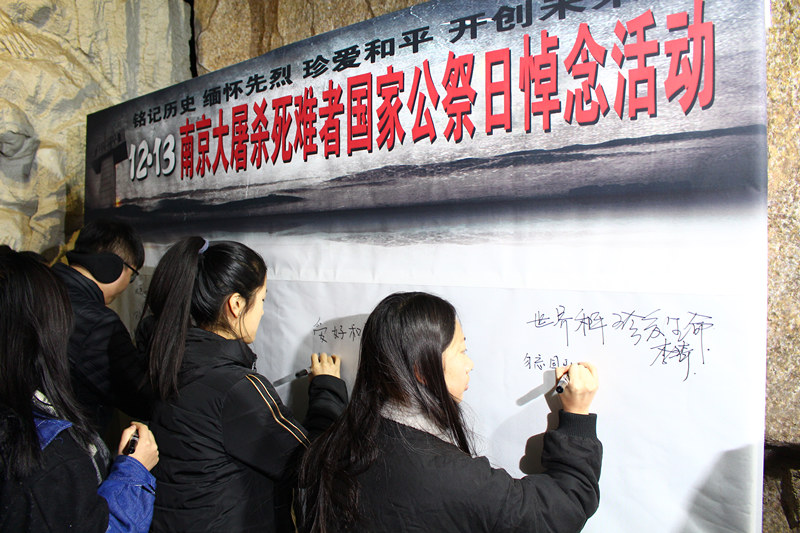 铭记历史 缅怀先烈 珍爱和平 开创未来
12·13南京大屠杀死难者国家公祭日悼念活动
爱好和
世界和平 珍爱